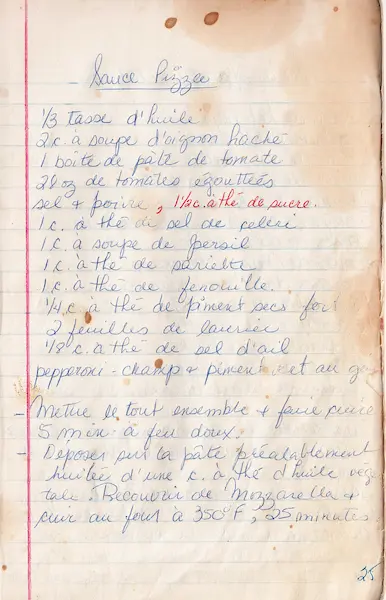 - Sauce Pizza
1/3 tasse d'huile
2 c. à soupe d'oignon haché
1 boîte de pâte de tomate
28 oz de tomates égouttées
sel & poivre, 1 1/2 c. à thé de sucre.
1 c. à thé de sel de céleri
1 c. à soupe de persil
1 c. à thé de sariette
1 c. à thé de fenouille.
1/4 c. à thé de piment secs for
2 feuilles de laurier
1/8 c. à thé de sel d'ail
pepperoni - champ & piment vet au
- Mettre le tout ensemble & faire cuire
5 min. à feu doux.
- Déposer sur la pâte préalablement
huilée d'une c. à thé d'huile végé
tale. Recouvrir de Mozzarella &
cuir au four à 350°F, 25 minutes
25